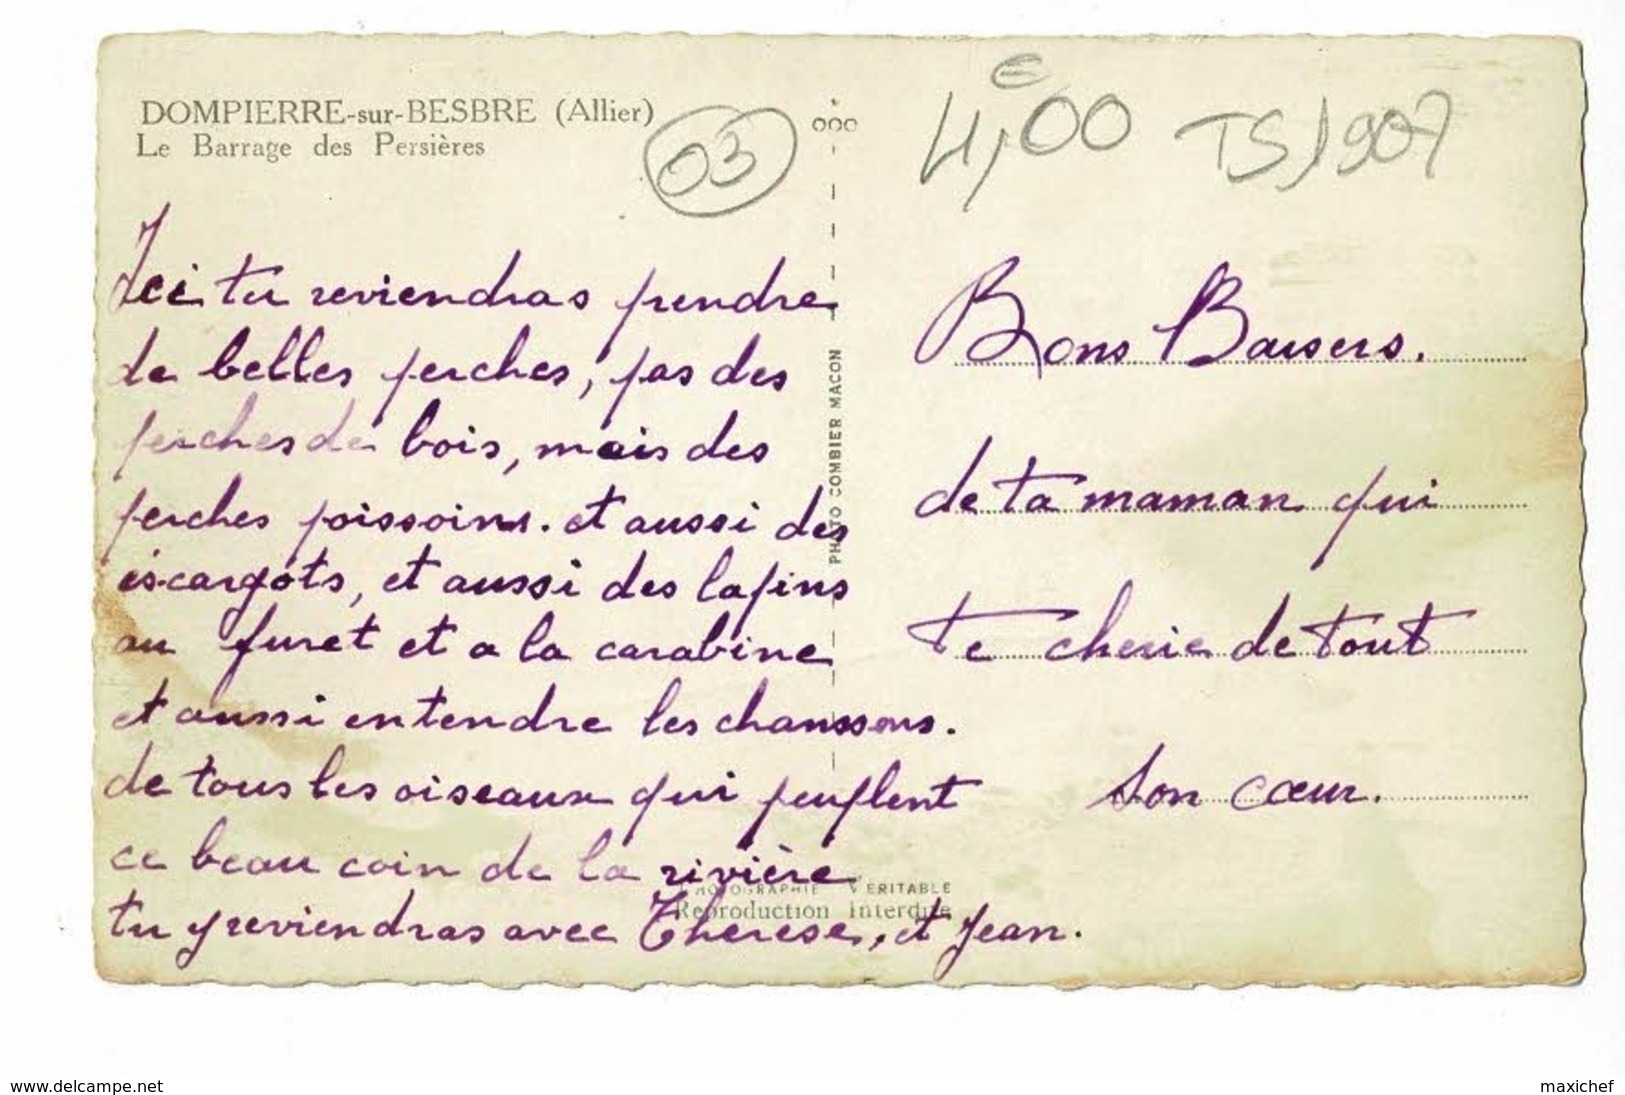 DOMPIERRE-sur-BESBRE (Allier)
Le Barrage des Persières
03
ooo
€
4,00 TS1907
Ici tu reviendras prendre
de belles perches, pas des
perches de bois, mais des
perches poissoins. et aussi des
escargots, et aussi des lapins
au furet et a la carabine
et aussi entendre les chanssons.
de tous les oiseaux qui peuplent
ce beau coin de la rivière
tu y reviendras avec Therese, et Jean.
PHOTO COMBIER MACON
PHOTOGRAPHIE VÉRITABLE
Reproduction Interdite
Bons Baisers.
de ta maman qui
te cherie de tout
son cœur.
www.delcampe.net
maxichef